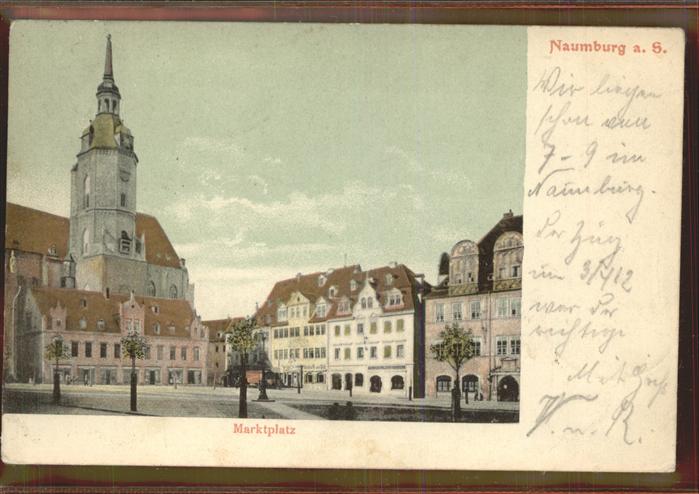 Naumburg a. S.
Wir liegen
schon von
7-9 in
Naumburg.
Der Zug
um 3/412
war der
richtige
Mit
V. u. R.
Marktplatz